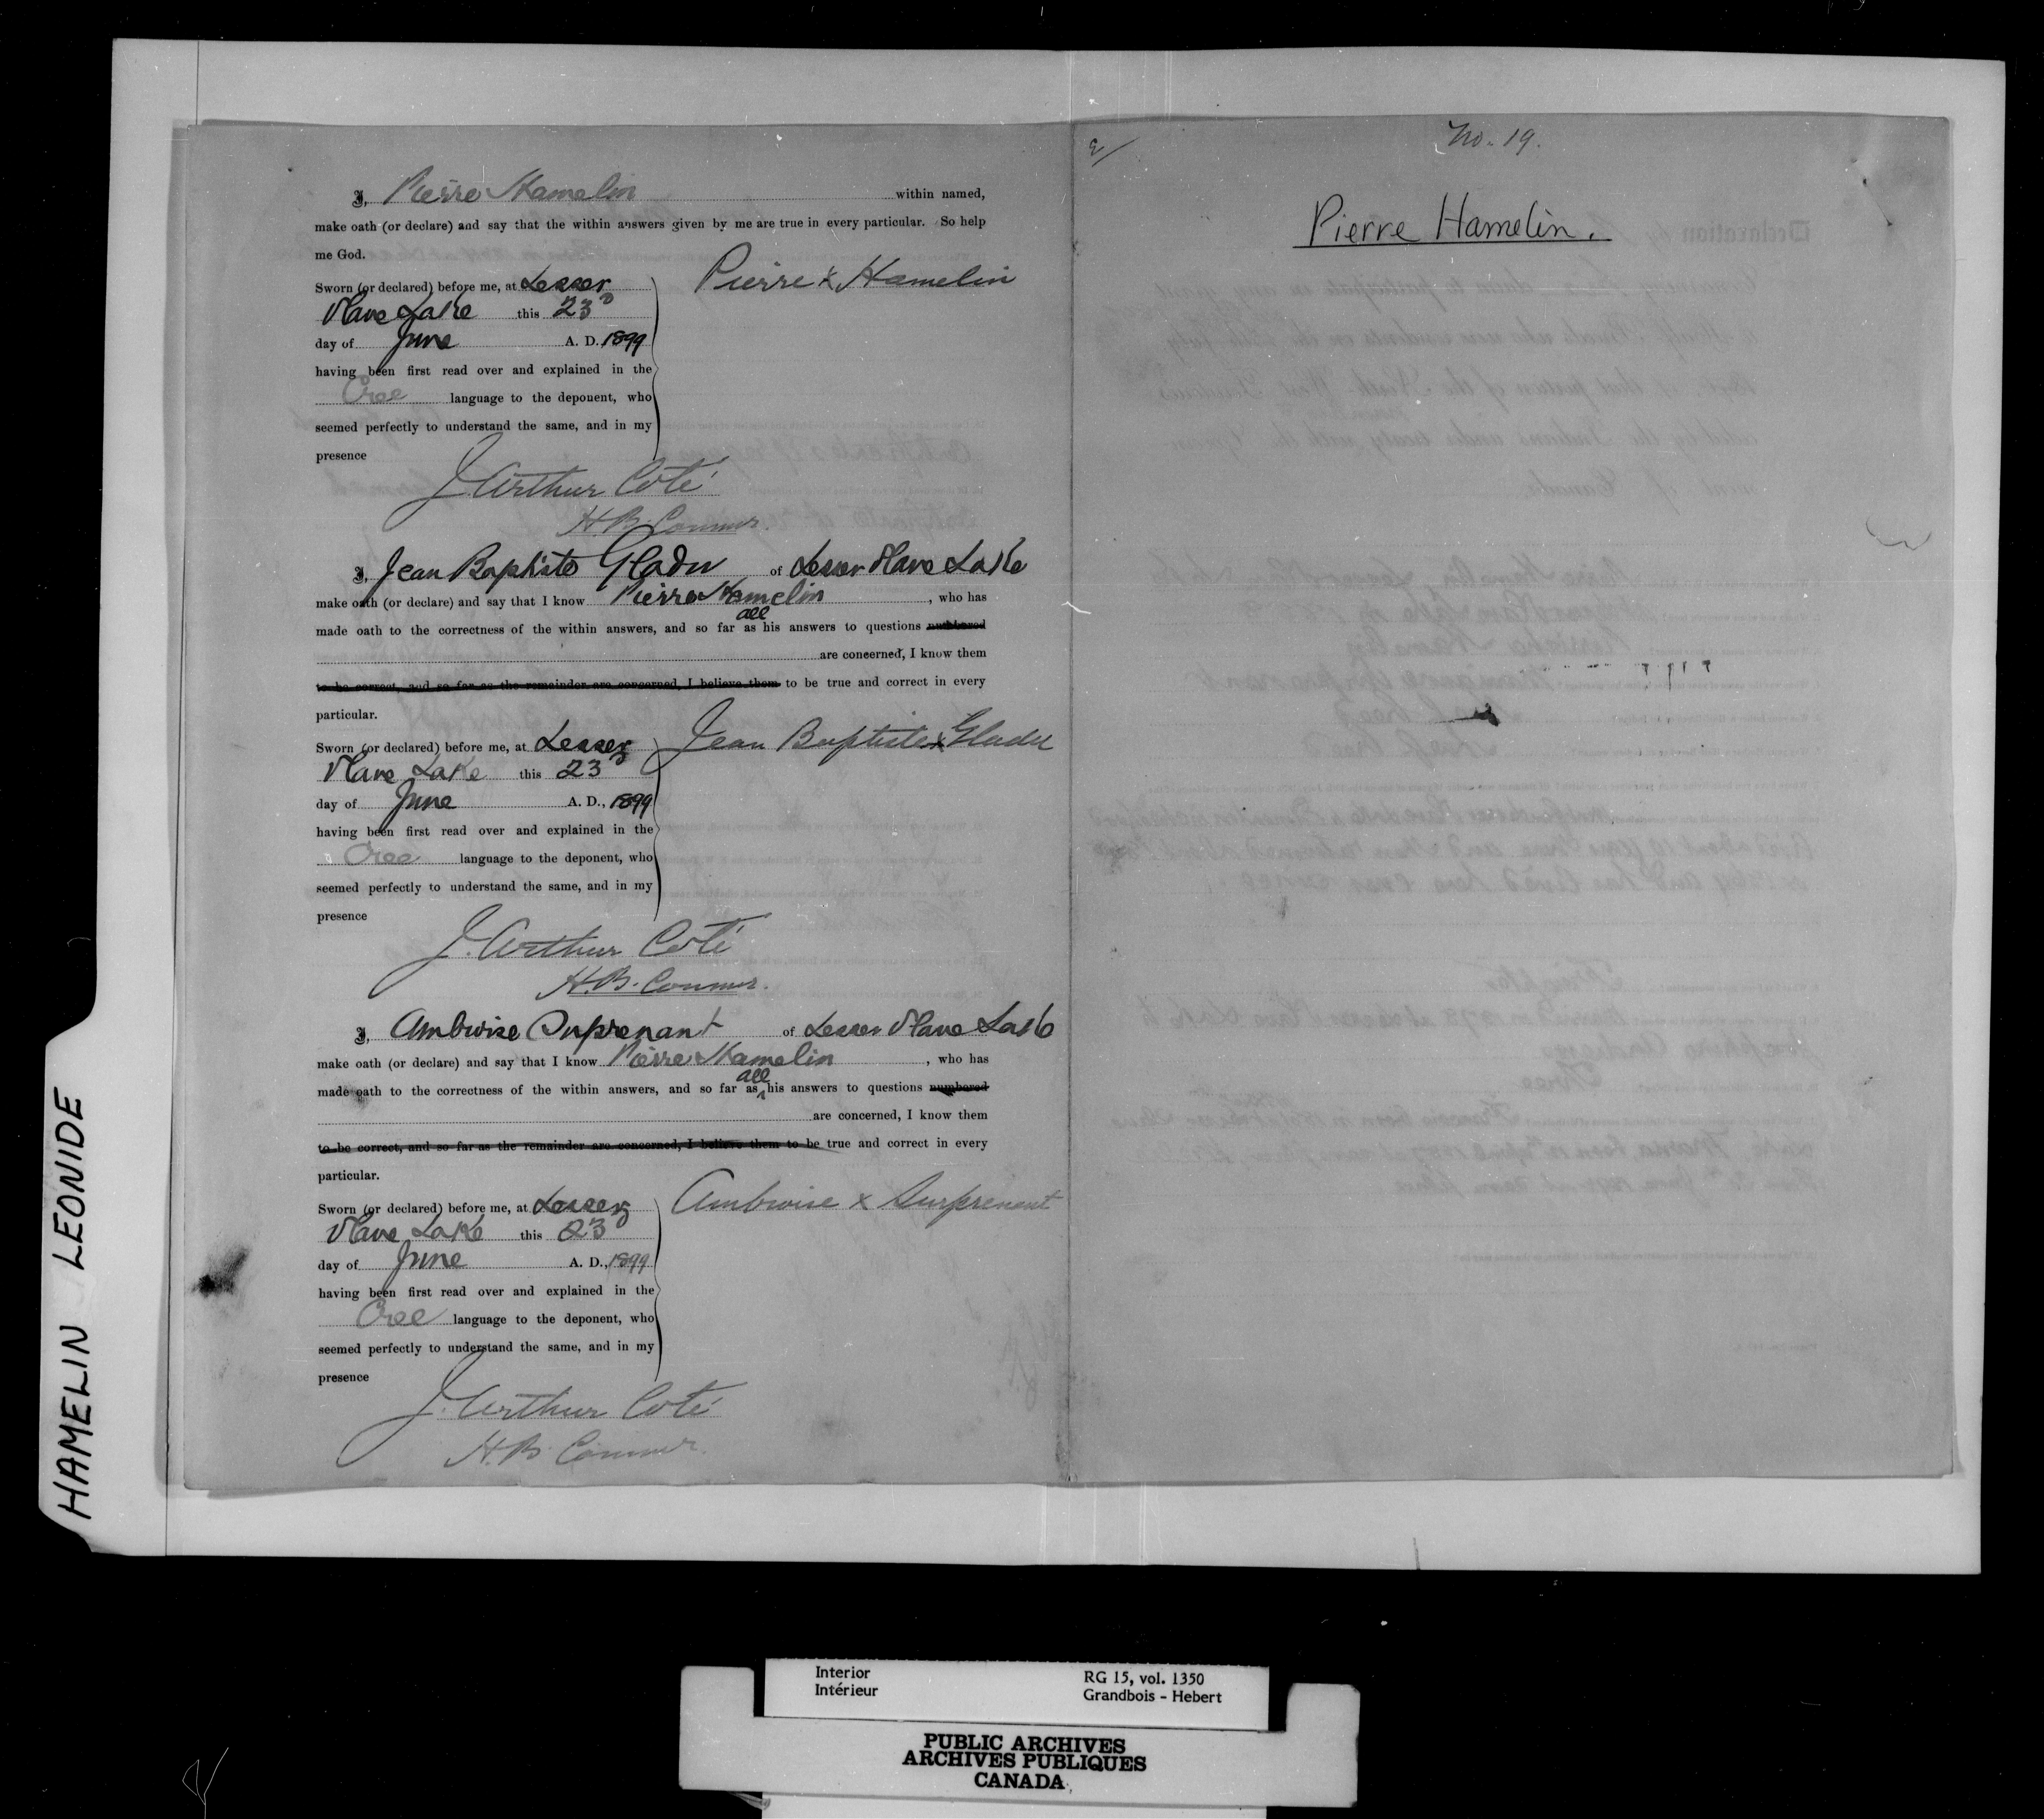 I, Pierre Hamelin within named,
make oath (or declare) and say that the within answers given by me are true in every particular. So help
me God.
Sworn (or declared) before me, at Lesser
Slave Lake this 23D
day of June A. D. 1899
having been first read over and explained in the
Cree language to the deponent, who
seemed perfectly to understand the same, and in my
presence
Pierre x Hamelin
J. Arthur Coté
H.B. Connor.
I, Jean Baptiste Gladu of Lesser Slave Lake
make oath (or declare) and say that I know Pierre Hamelin, who has
all
made oath to the correctness of the within answers, and so far as his answers to questions numbered
are concerned, I know them
to be correct, and so far as the remainder are concerned, I believe them to be true and correct in every
particular.
Sworn (or declared) before me, at Lesser
Slave Lake this 23D
day of June A. D., 1899
having been first read over and explained in the
Cree language to the deponent, who
seemed perfectly to understand the same, and in my
presence
Jean Baptiste x Gladu
J. Arthur Coté
H.B. Connor.
I, Ambroise Surprenant of Lesser Slave Lake
make oath (or declare) and say that I know Pierre Hamelin, who has
all
made oath to the correctness of the within answers, and so far as his answers to questions numbered
are concerned, I know them
to be correct, and so far as the remainder are concerned, I believe them to be true and correct in every
particular.
Sworn (or declared) before me, at Lesser
Slave Lake this 23D
day of June A. D., 1899
having been first read over and explained in the
Cree language to the deponent, who
seemed perfectly to understand the same, and in my
presence
Ambroise x Surprenant
J. Arthur Coté
H.B. Connor.
No. 19.
Pierre Hamelin.
HAMELIN LEONIDE
Interior
Intérieur
RG 15, vol. 1350
Grandbois - Hebert
PUBLIC ARCHIVES
ARCHIVES PUBLIQUES
CANADA